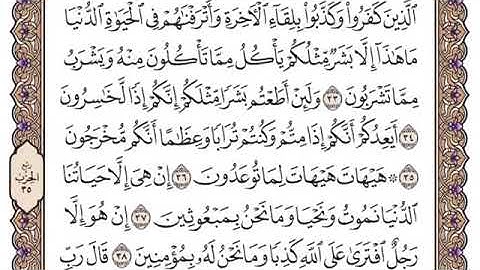 ٱلَّذِينَ كَفَرُوا۟ وَكَذَّبُوا۟ بِلِقَآءِ ٱلْأَخِرَةِ وَأَتْرَفْنَٰهُمْ فِى ٱلْحَيَوٰةِ ٱلدُّنْيَا
مَا هَٰذَآ إِلَّا بَشَرٌ مِّثْلُكُمْ يَأْكُلُ مِمَّا تَأْكُلُونَ مِنْهُ وَيَشْرَبُ
مِمَّا تَشْرَبُونَ ٣٣ وَلَئِنْ أَطَعْتُم بَشَرًا مِّثْلَكُمْ إِنَّكُمْ إِذًا لَّخَٰسِرُونَ
٣٤ أَيَعِدُكُمْ أَنَّكُمْ إِذَا مِتُّمْ وَكُنتُمْ تُرَابًا وَعِظَٰمًا أَنَّكُم مُّخْرَجُونَ
٣٥ ۞ هَيْهَاتَ هَيْهَاتَ لِمَا تُوعَدُونَ ٣٦ إِنْ هِىَ إِلَّا حَيَاتُنَا
ٱلدُّنْيَا نَمُوتُ وَنَحْيَا وَمَا نَحْنُ بِمَبْعُوثِينَ ٣٧ إِنْ هُوَ إِلَّا
رَجُلٌ ٱفْتَرَىٰ عَلَى ٱللَّهِ كَذِبًا وَمَا نَحْنُ لَهُۥ بِمُؤْمِنِينَ ٣٨ قَالَ رَبِّ
ربع
الحزب
٣٥